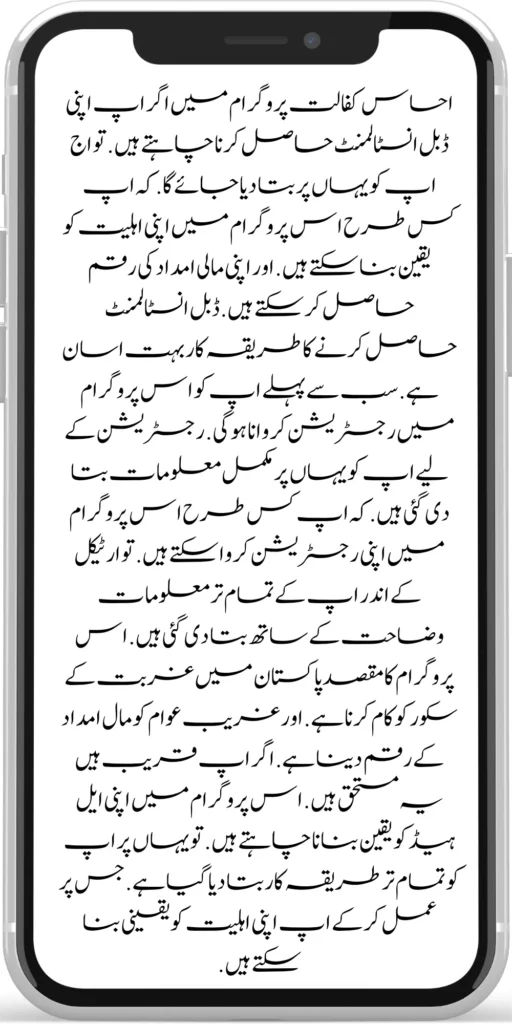 احساس کفالت پروگرام میں اگر اپ اپنی
ڈبل انسٹالمنٹ حاصل کرنا چاہتے ہیں. تو اج
اپ کو یہاں پر بتا دیا جائے گا. کہ اپ
کس طرح اس پروگرام میں اپنی اہلیت کو
یقین بنا سکتے ہیں. اور اپنی مالی امداد کی رقم
حاصل کر سکتے ہیں. ڈبل انسٹالمنٹ
حاصل کرنے کا طریقہ کار بہت اسان
ہے. سب سے پہلے اپ کو اس پروگرام
میں رجسٹریشن کروانا ہوگی. رجسٹریشن کے
لیے اپ کو یہاں پر مکمل معلومات بتا
دی گئی ہیں. کہ اپ کس طرح اس پروگرام
میں اپنی رجسٹریشن کروا سکتے ہیں. تو ارٹیکل
کے اندر اپ کے تمام تر معلومات
وضاحت کے ساتھ بتا دی گئی ہیں. اس
پروگرام کا مقصد پاکستان میں غربت کے
سکور کو کام کرنا ہے. اور غریب عوام کو مال امداد
کے رقم دینا ہے. اگر اپ قریب ہیں
یہ مستحق ہیں. اس پروگرام میں اپنی ایل
ہیڈ کو یقین بنانا چاہتے ہیں. تو یہاں پر اپ
کو تمام تر طریقہ کار بتا دیا گیا ہے. جس پر
عمل کر کے اپ اپنی اہلیت کو یقینی بنا
سکتے ہیں.